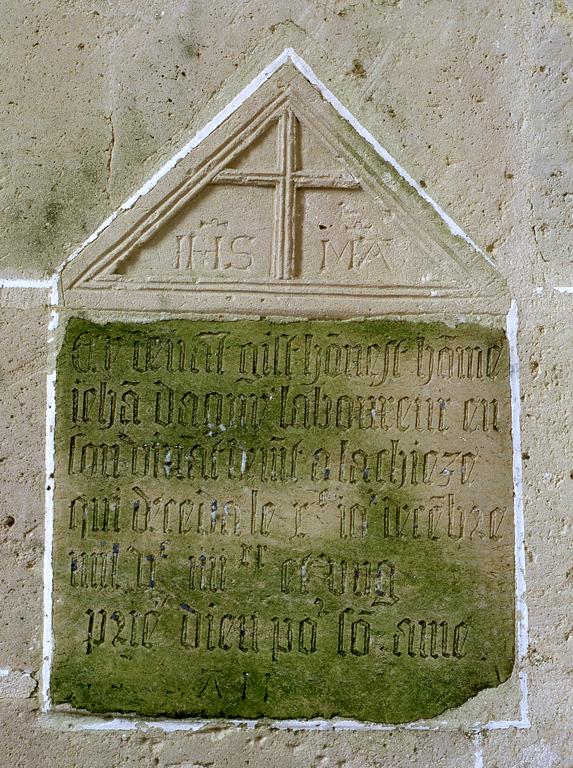 IHS MA
Cy devāt gist hōneste hōme
iehā dagny laboureur en
son vivāt demt a lachieze
qui deceda le xe ior decēbre
mil vc iiii xx et ung
priés dieu por sō ame